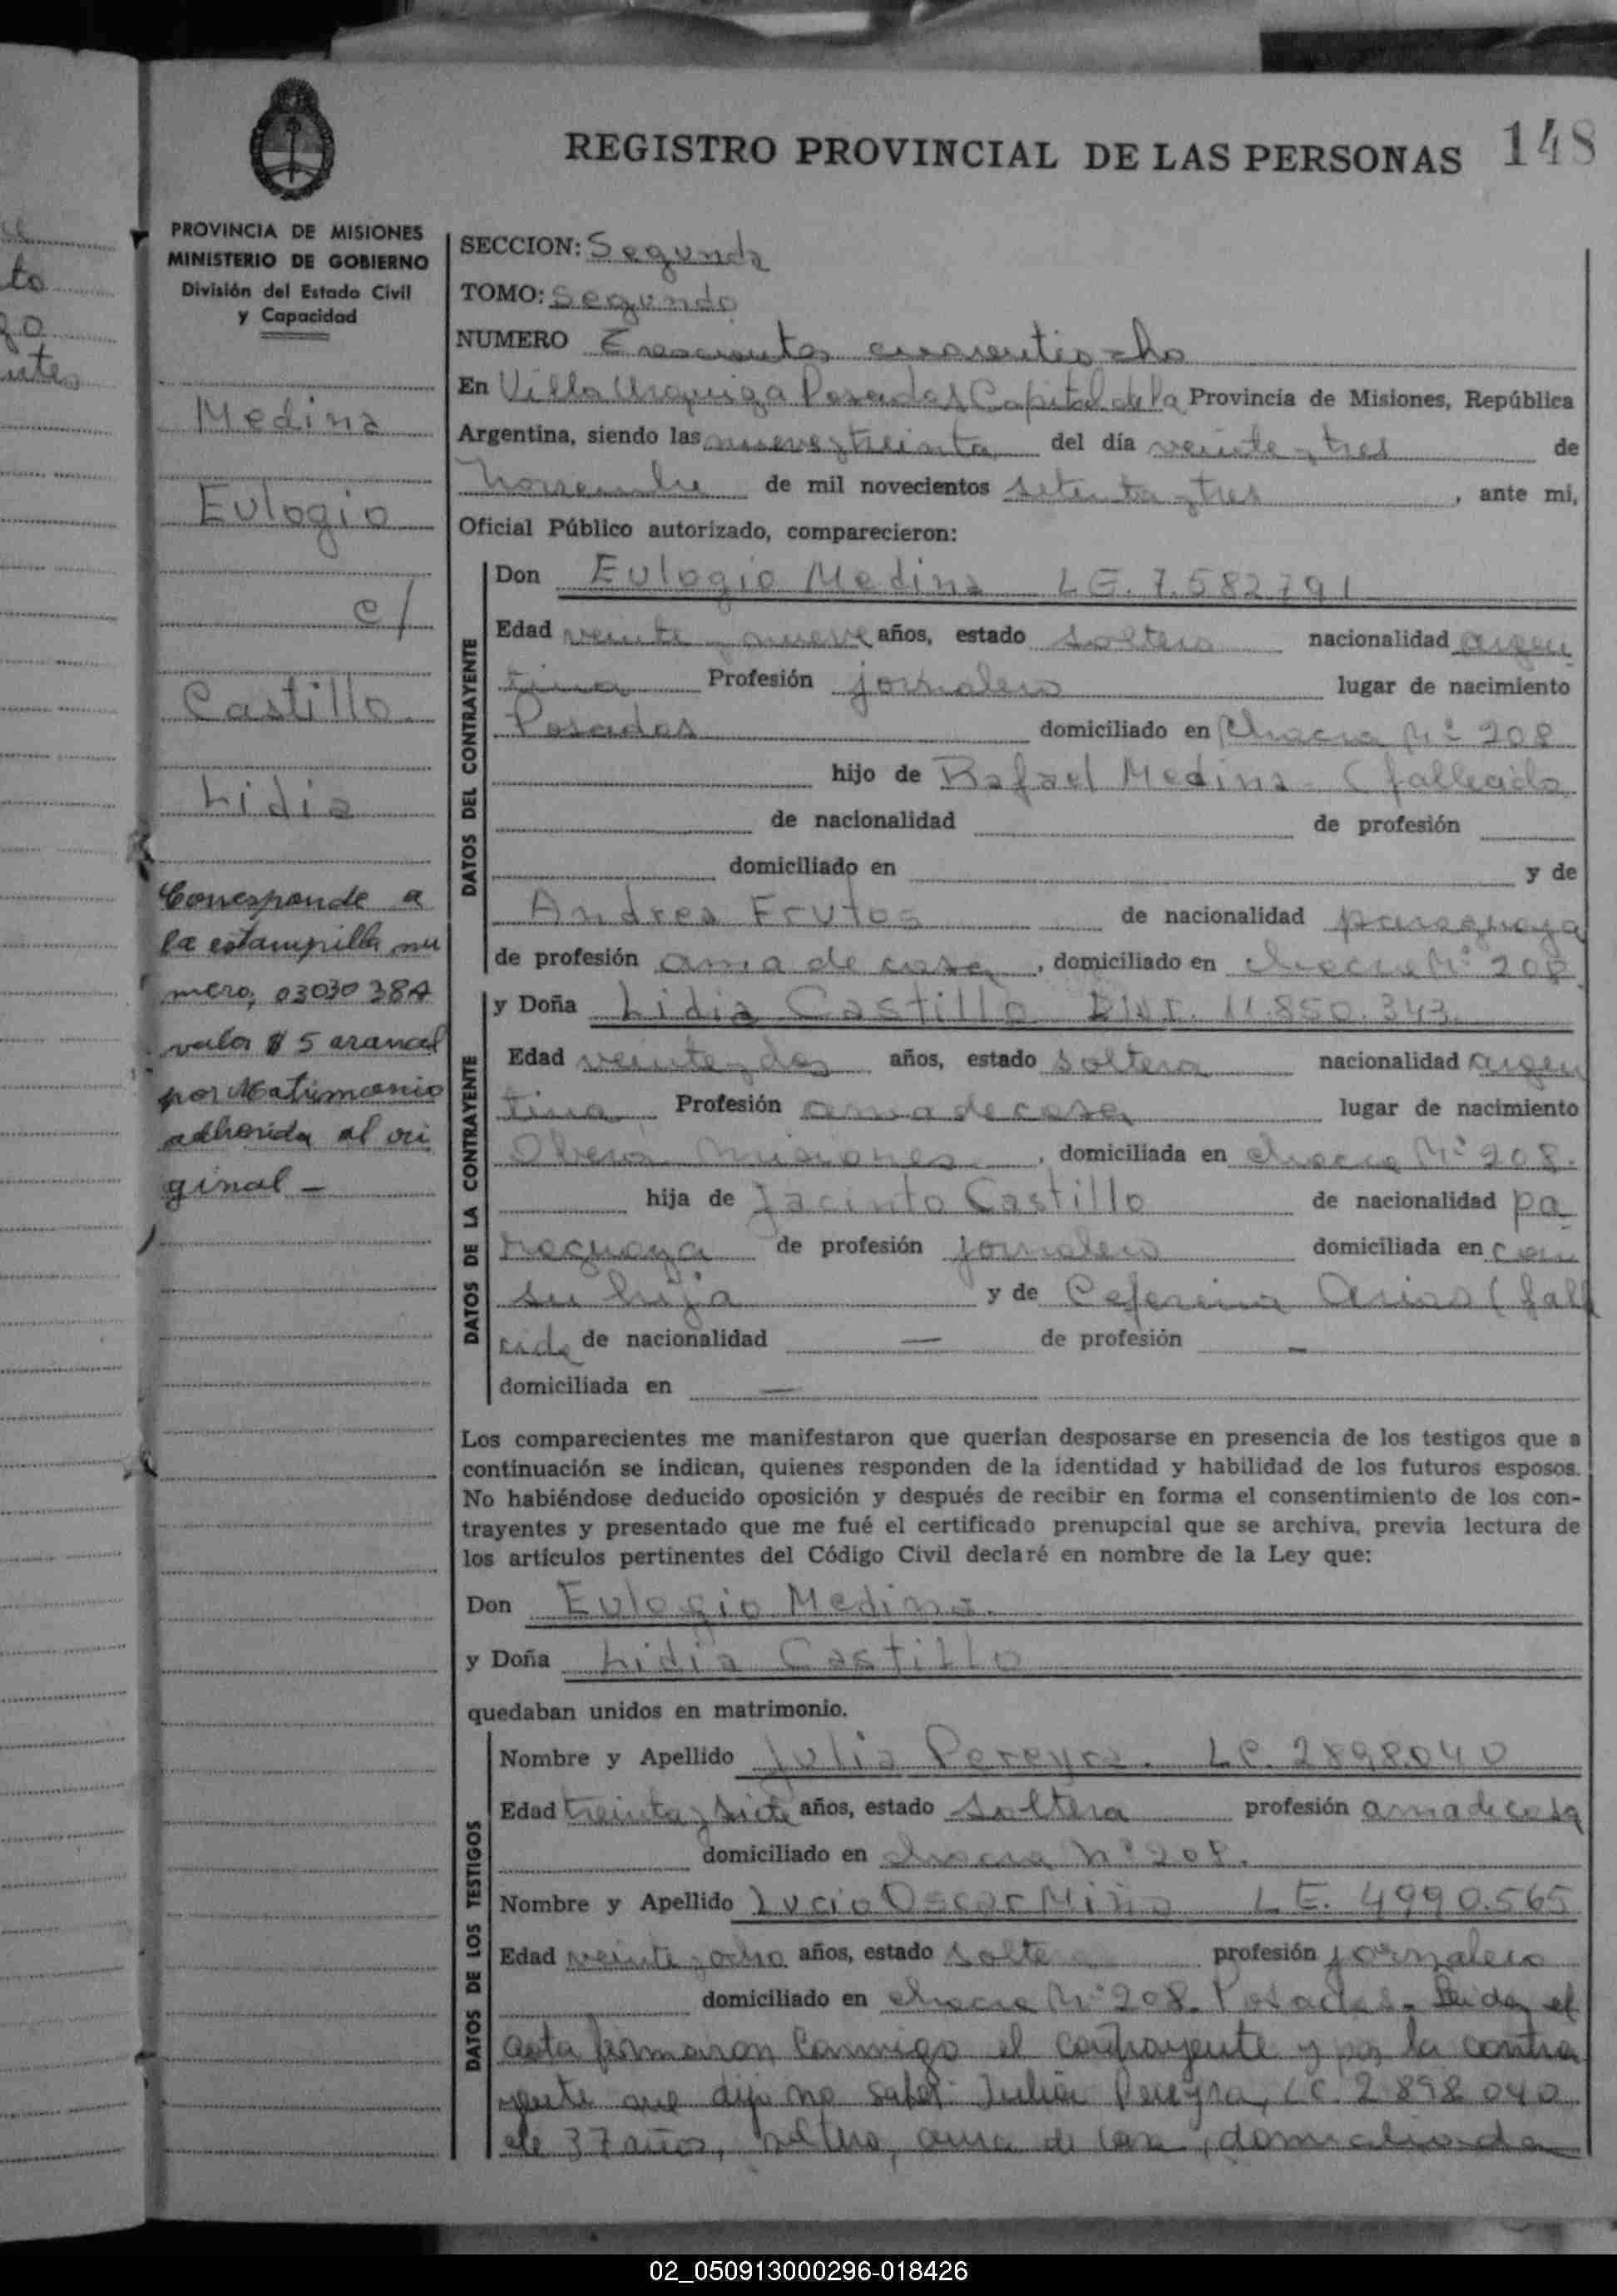 REGISTRO PROVINCIAL DE LAS PERSONAS 148
PROVINCIA DE MISIONES
MINISTERIO DE GOBIERNO
División del Estado Civil
y Capacidad
Medina
Eulogio
c/
Castillo
Lidia
Corresponde a
la estampilla nu
mero; 0303038A
valor $ 5 arancel
por Matrimonio
adherida al ori
ginal -
SECCION: Segunda
TOMO: Segundo
NUMERO Trescientos cuarentiocho
En Villa Urquiza Posadas Capital de la Provincia de Misiones, República
Argentina, siendo las nueve y treinta del día veinte y tres de
noviembre de mil novecientos setenta y tres, ante mi,
Oficial Público autorizado, comparecieron:
DATOS DEL CONTRAYENTE
Don Eulogio Medina LE. 7.582791
Edad veinte y nueve años, estado soltero nacionalidad argen
tina Profesión jornalero lugar de nacimiento
Posadas domiciliado en Chacra Nº 208
hijo de Rafael Medina - (fallecido
de nacionalidad de profesión
domiciliado en y de
Andrea Frutos de nacionalidad paraguaya
de profesión ama de casa, domiciliado en chacra Nº 208
DATOS DE LA CONTRAYENTE
y Doña Lidia Castillo DNI. 11.850.343
Edad veinte y dos años, estado soltera nacionalidad argen
tina Profesión ama de casa lugar de nacimiento
Oberá Misiones, domiciliada en chacra Nº 208.
hija de Jacinto Castillo de nacionalidad pa
raguaya de profesión jornalero domiciliada en con
su hija y de Ceferina Arias (falle
cida de nacionalidad — de profesión -
domiciliada en —
Los comparecientes me manifestaron que querían desposarse en presencia de los testigos que a
continuación se indican, quienes responden de la identidad y habilidad de los futuros esposos.
No habiéndose deducido oposición y después de recibir en forma el consentimiento de los con-
trayentes y presentado que me fué el certificado prenupcial que se archiva, previa lectura de
los artículos pertinentes del Código Civil declaré en nombre de la Ley que:
Don Eulogio Medina.
y Doña Lidia Castillo
quedaban unidos en matrimonio.
DATOS DE LOS TESTIGOS
Nombre y Apellido Julia Pereyra. LC. 2898040
Edad treinta y siete años, estado soltera profesión ama de casa
domiciliado en chacra Nº 208.
Nombre y Apellido Lucio Oscar Miño LE. 4990.565
Edad veinte y ocho años, estado soltero profesión jornalero
domiciliado en chacra Nº 208. Posadas. Leida el
acta firmaron conmigo el contrayente y por la contra
yente que dijo no saber Julia Pereyra, LC. 2898040
de 37 años, soltera, ama de casa, domiciliada
02_050913000296-018426